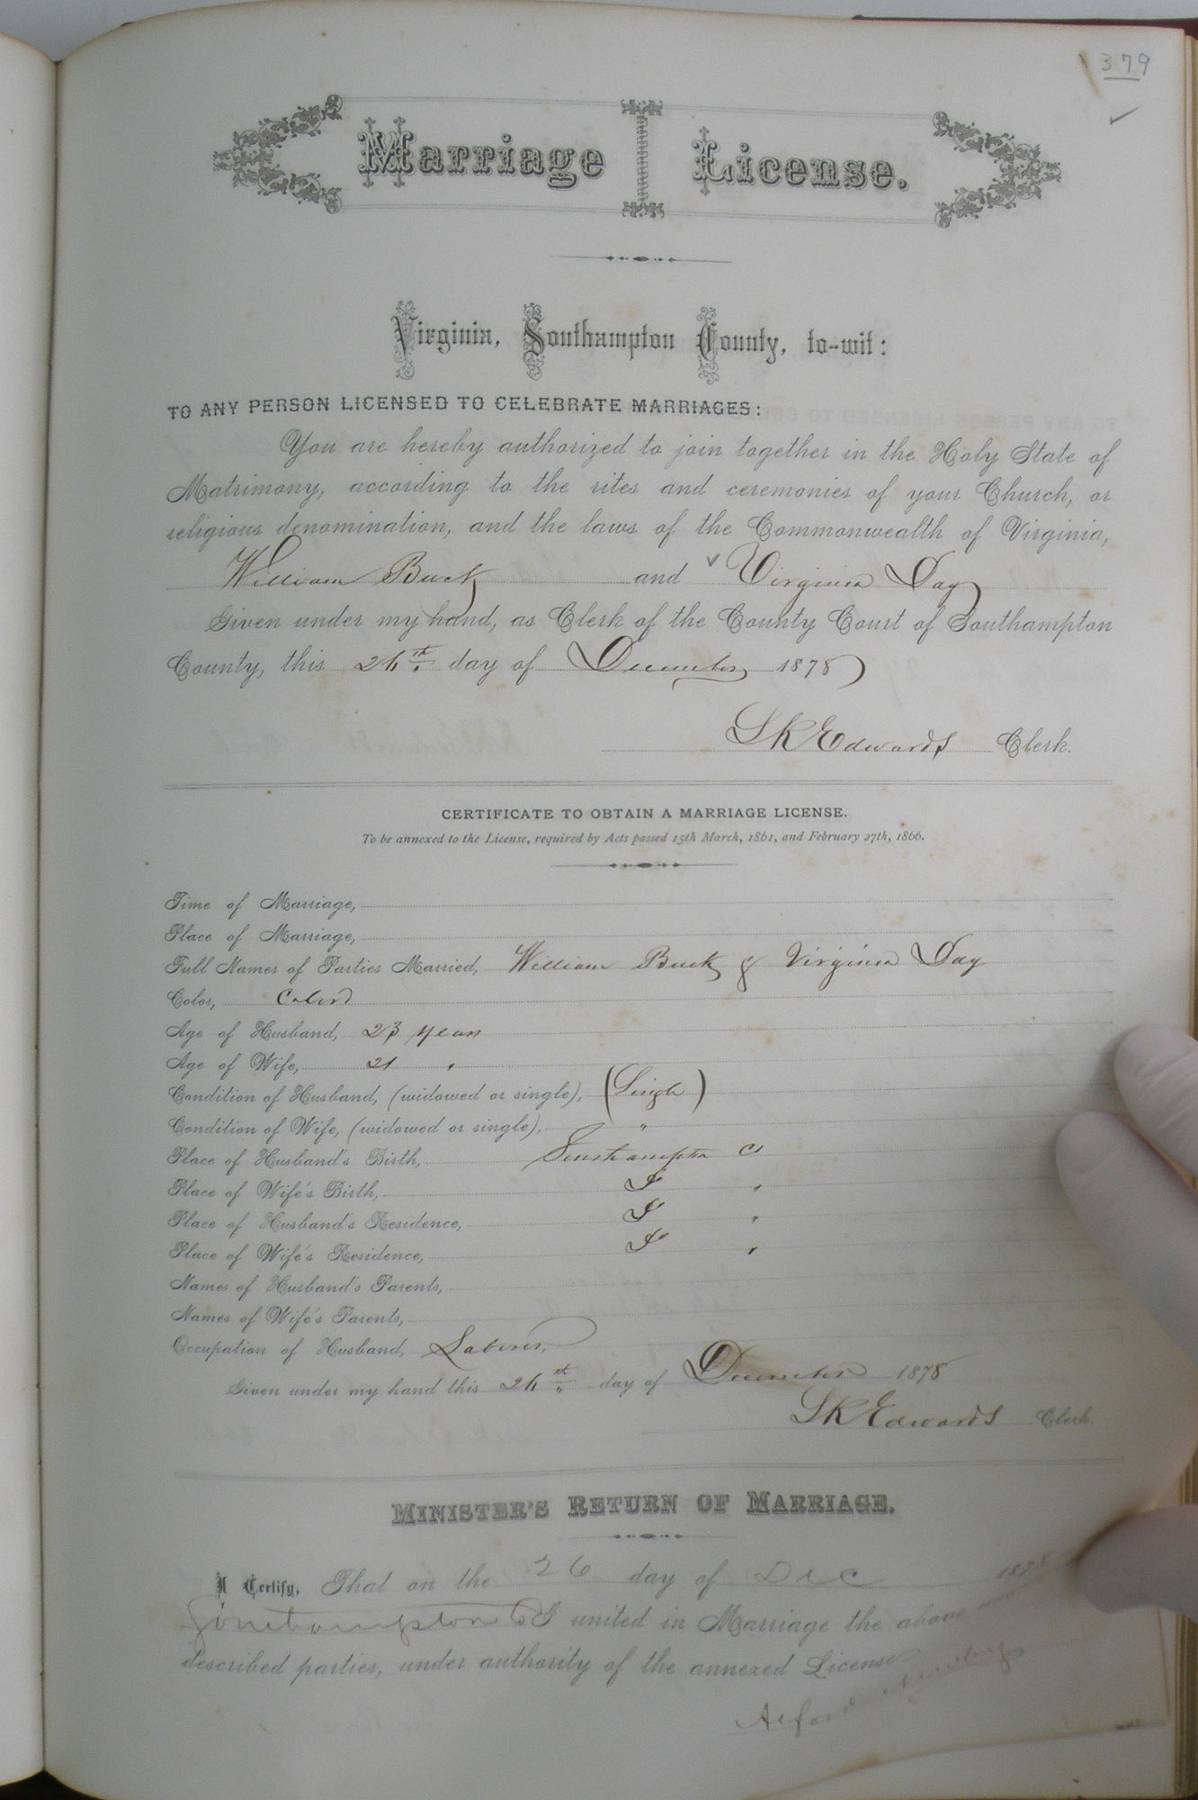 379
Marriage License.
Virginia, Southampton County, to-wit:
TO ANY PERSON LICENSED TO CELEBRATE MARRIAGES:
You are hereby authorized to join together in the Holy State of
Matrimony, according to the rites and ceremonies of your Church, or
religious denomination, and the laws of the Commonwealth of Virginia,
William Buck and Virginia Day
Given under my hand, as Clerk of the County Court of Southampton
County, this 26th day of December 1878
L R Edwards Clerk.
CERTIFICATE TO OBTAIN A MARRIAGE LICENSE.
To be annexed to the License, required by Acts passed 15th March, 1861, and February 27th, 1866.
Time of Marriage,
Place of Marriage,
Full Names of Parties Married, William Buck & Virginia Day
Color, Colord
Age of Husband, 23 years
Age of Wife, 21 "
Condition of Husband, (widowed or single), (Single)
Condition of Wife, (widowed or single), "
Place of Husband's Birth, Southampton Co
Place of Wife's Birth, "
Place of Husband's Residence, "
Place of Wife's Residence, "
Names of Husband's Parents,
Names of Wife's Parents,
Occupation of Husband, Laborer.
Given under my hand this 26th day of December 1878
L R Edwards Clerk.
MINISTER'S RETURN OF MARRIAGE.
I Certify, That on the 26 day of Dec 187
Southampton Co I united in Marriage the above
described parties, under authority of the annexed License